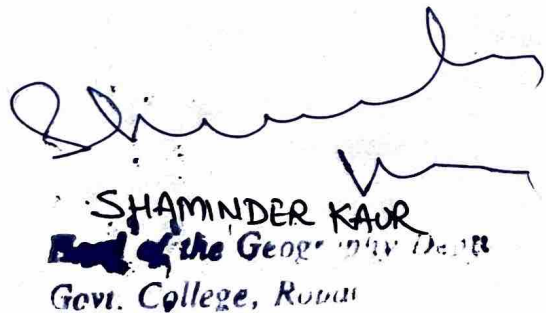 SHAMINDER KAUR
Head of the Geography Deptt
Govt. College, Ropar